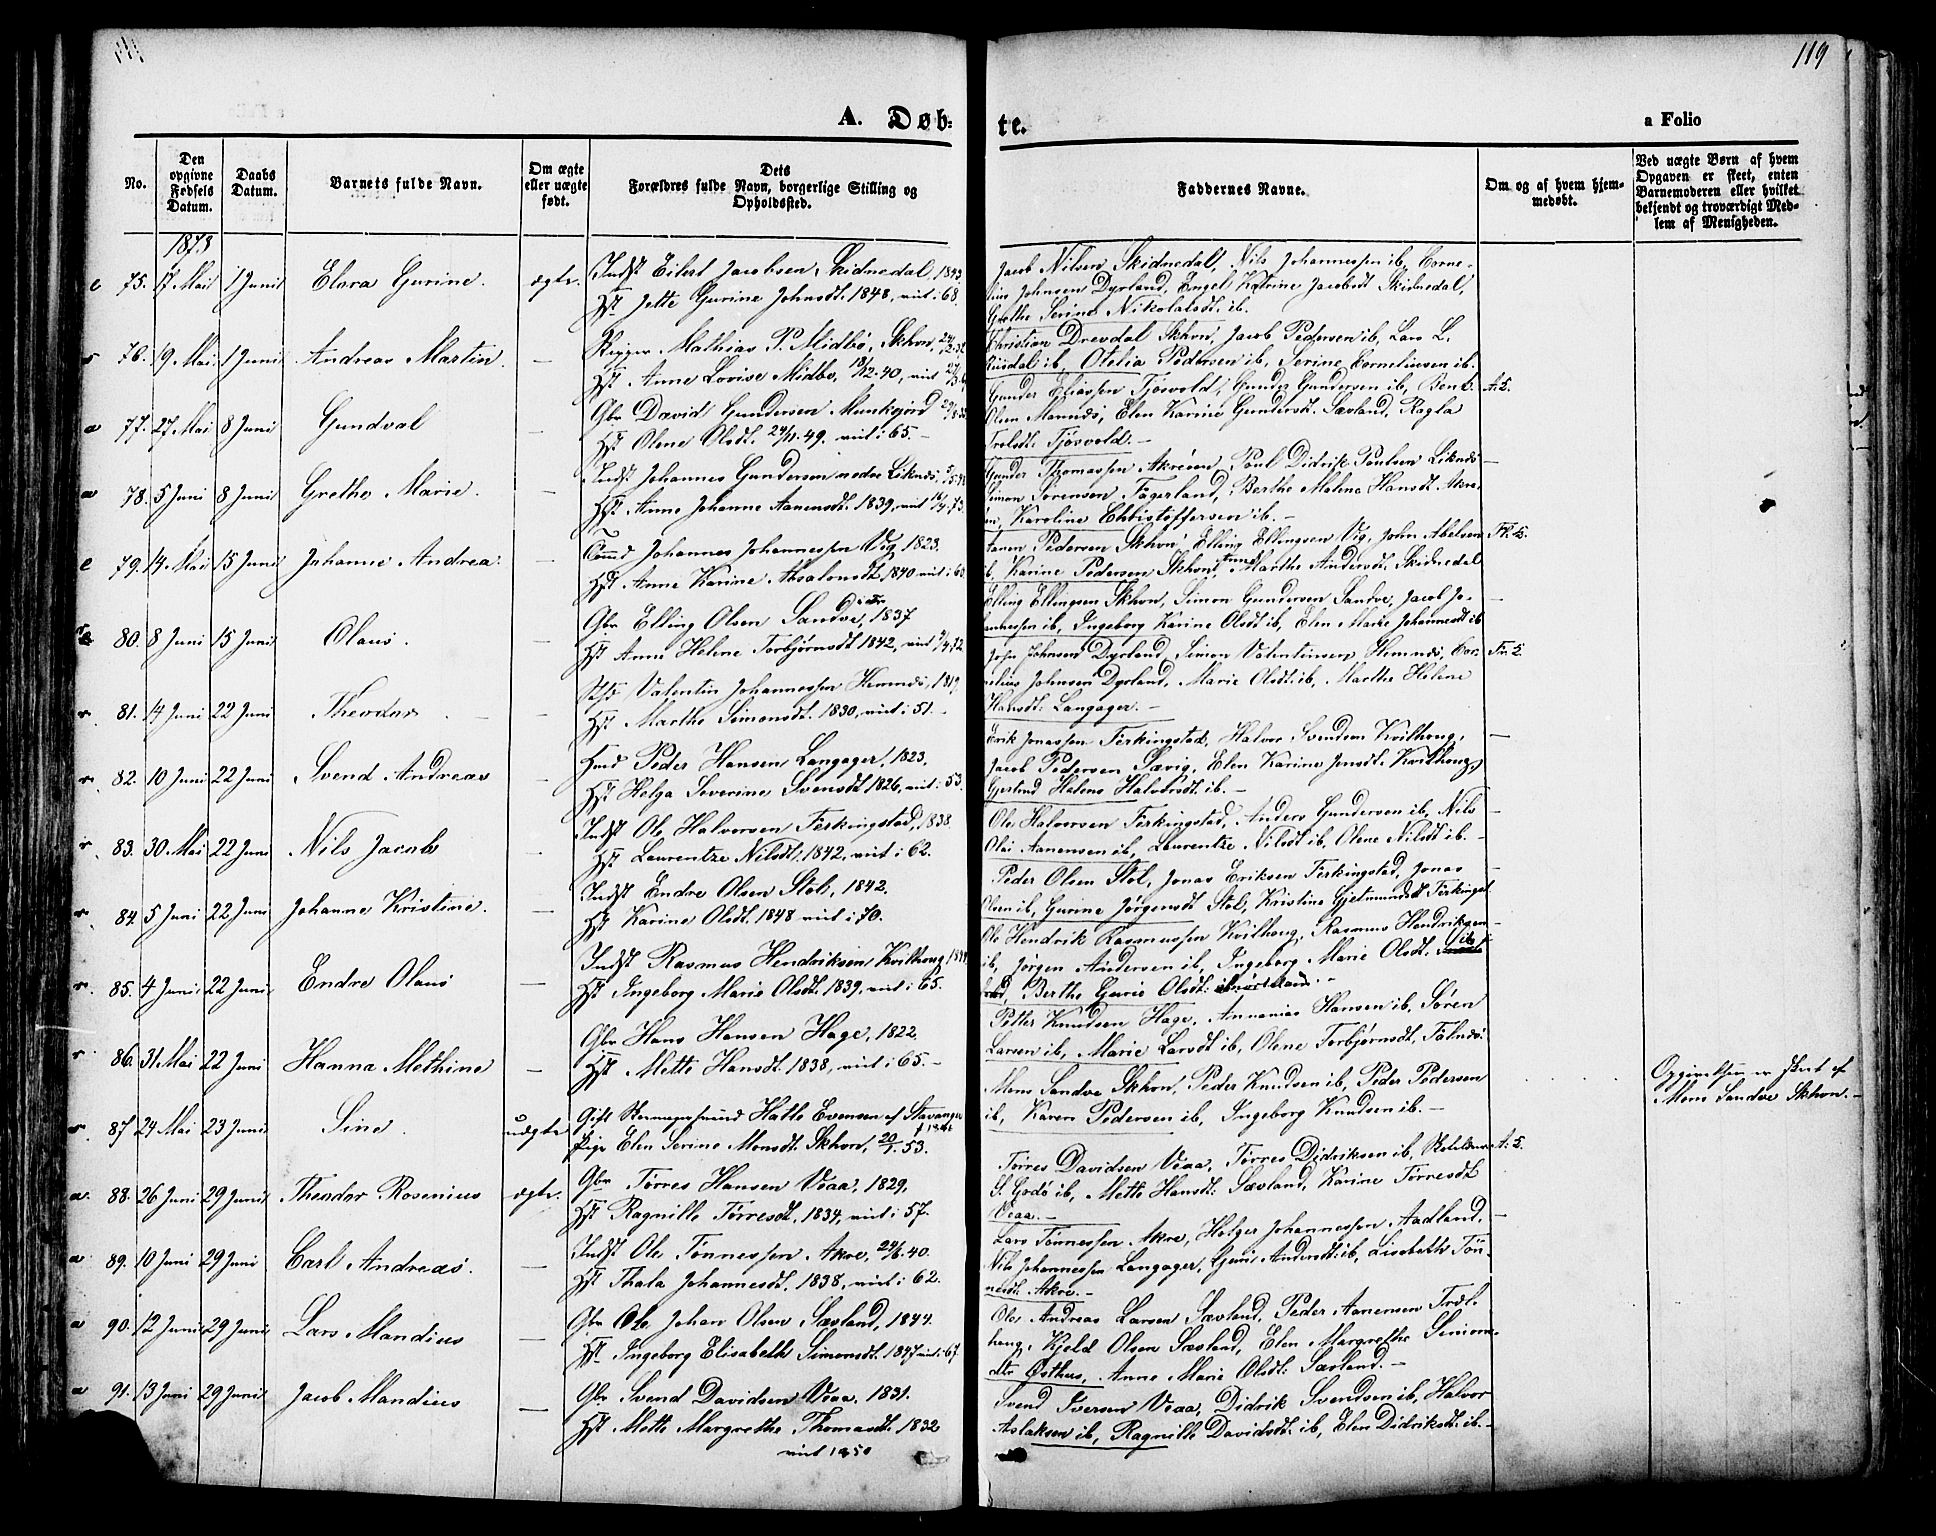 119
A. Døb-
te.
a Folio
No.
Den opgivne Fødsels Datum.
Daabs Datum.
Barnets fulde Navn.
Om ægte eller uægte født.
Dets Forældres fulde Navn, borgerlige Stilling og Opholdssted.
Faddernes Navne.
Om og af hvem hjem-
medøbt.
Ved uægte Børn af hvem
Opgaven er skeet, enten
Barnemoderen eller hvilket
bekjendt og troværdigt Med-
lem af Menigheden.
1873
75. 17 Mai 1 Juni Elora Gurine. ægte. Indst Eilert Jacobsen Skidnedal, 1843.
Hst Jette Gurine Johnsdt. 1848, viet i 68.
Jacob Nilsen Skidnedal, Nils Johannessen ib, Corne-
lius Johnsen Dyrland, Engel Katrine Jacobsdt Skidnedal,
Grethe Serine Nikolaisdt. ib.
76. 19 Mai 1 Juni Andreas Martin. — Mathias P. Midbø, Skhvn,
Hst Anne Lovise Midbø, 12-40, viet
Christian Drevdal Skhvn, Jacob Pedersen ib, Lars L.
ib, Otelia Pedersen ib, Serine Corneliusen ib.
77. 27 Mai 8 Juni Gundval — Gbr David Gundersen Munkejord
Hst Olene Olsdt. 49. viet i 65.—
Gunder Eliassen Tjøsvold, Gunder Gundersen ib, Bent
Olsen Mannes, Elen Karine Gundersdt. Sævland, Ragla
Tjøsvold.—
78. 5 Juni 8 Juni Grethe Marie. — Indst. Johannes Gundersen nedre Liknes,
Hst Anne Johanne Aanensdt. 1839, viet 73.
Gunder Thomassen Akrеen, Poul Didrik Poulsen Liknes
Simon Sørensen Fagerland, Berthe Malene Hansdt. Akre-
en, Karoline Christoffersen ib.—
79. 14 Mai 15 Juni Johanne Andrea. — Johannes Johannessen Vig, 1823.
Hst Anne Karine Absalonsdt, 1840 viet i 60
Aanen Pedersen Skhvn, Elling Ellingsen Vig, John Abelsen
ib, Karine Pedersen Skhvn, Marthe Andersdt. Skidnedal
80. 8 Juni 15 Juni Olaus. — Gbr Elling Olsen Sandve, 1837
Hst Anne Helene Torbjørnsdt 1842, viet 72
Elling Ellingsen Skhvn, Simon Gundersen Sandve, Jacob Jo-
hannessen ib, Ingeborg Karine Olsdt ib, Elen Marie Johannesdt ib
81. 14 Juni 22 Juni Theodor. — Valentin Johannessen Hemnes, 1819.
Hst Marthe Simonsdt. 1830, viet i 51.—
John Johnsen Dyrland, Simon Valentinsen Hemnes, Cor-
nelius Johnsen Dyrland, Marie Olsdt ib, Marthe Helene
Hansdt: Langager.—
82. 10 Juni 22 Juni Svend Andreas — Hmd Peder Hansen Langager, 1823.
Hst Helga Severine Svensdt 1826, viet i 53.
Erik Jonassen Ferkingstad, Halvor Svendsen Kvilhoug,
Jacob Pedersen Sævig, Elen Karine Jensdt. Kvilhoug,
Gjertrud Helene Halvorsdt ib.—
83. 30 Mai 22 Juni Nils Jacob — Indst Ole Halvorsen Ferkingstad, 1838.
Hst Laurentze Nilsdt, 1842, viet i 62.
Ole Halvorsen Ferkingstad, Anders Gundersen ib, Nils
Olai Aanensen ib, Laurentze Nilsdt ib, Olene Nilsdt ib.—
84. 5 Juni 22 Juni Johanne Kristine. — Indst Endre Olsen Stol, 1842.
Hst Karine Olsdt. 1848 viet i 70.
Peder Olsen Stol, Jonas Eriksen Ferkingstad, Jonas
Olsen ib, Gurine Jørgensdt Stol, Kristine Gjetmundsdt Ferkingst
85. 4 Juni 22 Juni Endre Olaus — Indst Rasmus Hendriksen Kvilhoug,
Hst Ingeborg Marie Olsdt. 1839, viet i 65.
Ole Hendrik Rasmussen Kvilhoug, Rasmus Hendriksen
ib, Jørgen Andersen ib, Ingeborg Marie Olsdt. ib
Berthe Gurie Olsdt:
86. 31 Mai 22 Juni Hanna Methine — Gbr Hans Hansen Hage, 1822.
Hst Mette Hansdt. 1838, viet i 65.—
Petter Knudsen Hage, Annanias Hansen ib, Søren
Larsen ib, Marie Larsdt ib, Olene Torbjørnsdt, Falnes.
87 24 Mai 23 Juni Sine. uægte. Gift Halle Evensen af Stavanger
Pige Elen Serine Monsdt. Skhvn, 53.
Mons Sandve Skhvn, Peder Knudsen ib, Peder Pedersen
ib, Karen Pedersen ib, Ingeborg Knudsen ib.—
Opgivelsen er skeet af
Mons Sandve Skhvn.—
88. 26 Juni 29 Juni Theodor Rosenius ægte. Gbr Tørres Hansen Veaa, 1829,
Hst Ragnille Tørresdt, 1834, viet i 57.
Tørres Davidsen Veaa, Tørres Didriksen ib,
S. Godø ib, Mette Hansdt: Sævland, Karine Tørresdt
Veaa.—
89. 10 Juni 29 Juni Carl Andreas. — Indst Ole Tønnessen Akre, 24/6. 40.
Hst Thala Johannesdt, 1838, viet i 62.
Lars Tønnessen Akre, Holger Johannessen Aadland,
Nils Johannessen Langager, Andersdt: ib, Lisebeth Tøn-
nesdt. Akre.—
90. 12 Juni 29 Juni Lars Mandius — Gbr Ole Johan Olsen Sævland, 1844.
Hst Ingeborg Elisabeth Simonsdt. 1847 viet i 67.
Ole Andreas Larsen Sævland, Peder Aanensen Træl-
houg, Kjeld Olsen Sævland, Elen Margrethe Simons-
dtr Østhus, Anne Marie Olsdt: Sævland.—
91. 13 Juni 29 Juni Jacob Mandius — Gbr Svend Davidsen Veaa, 1831.
Hst Mette Margrethe Thomasdt. 1832
viet 1850
Svend Iversen Veaa, Didrik Svendsen ib, Halvor
Aslaksen ib, Ragnille Davidsdt: ib, Elen Didriksdt: ib.—